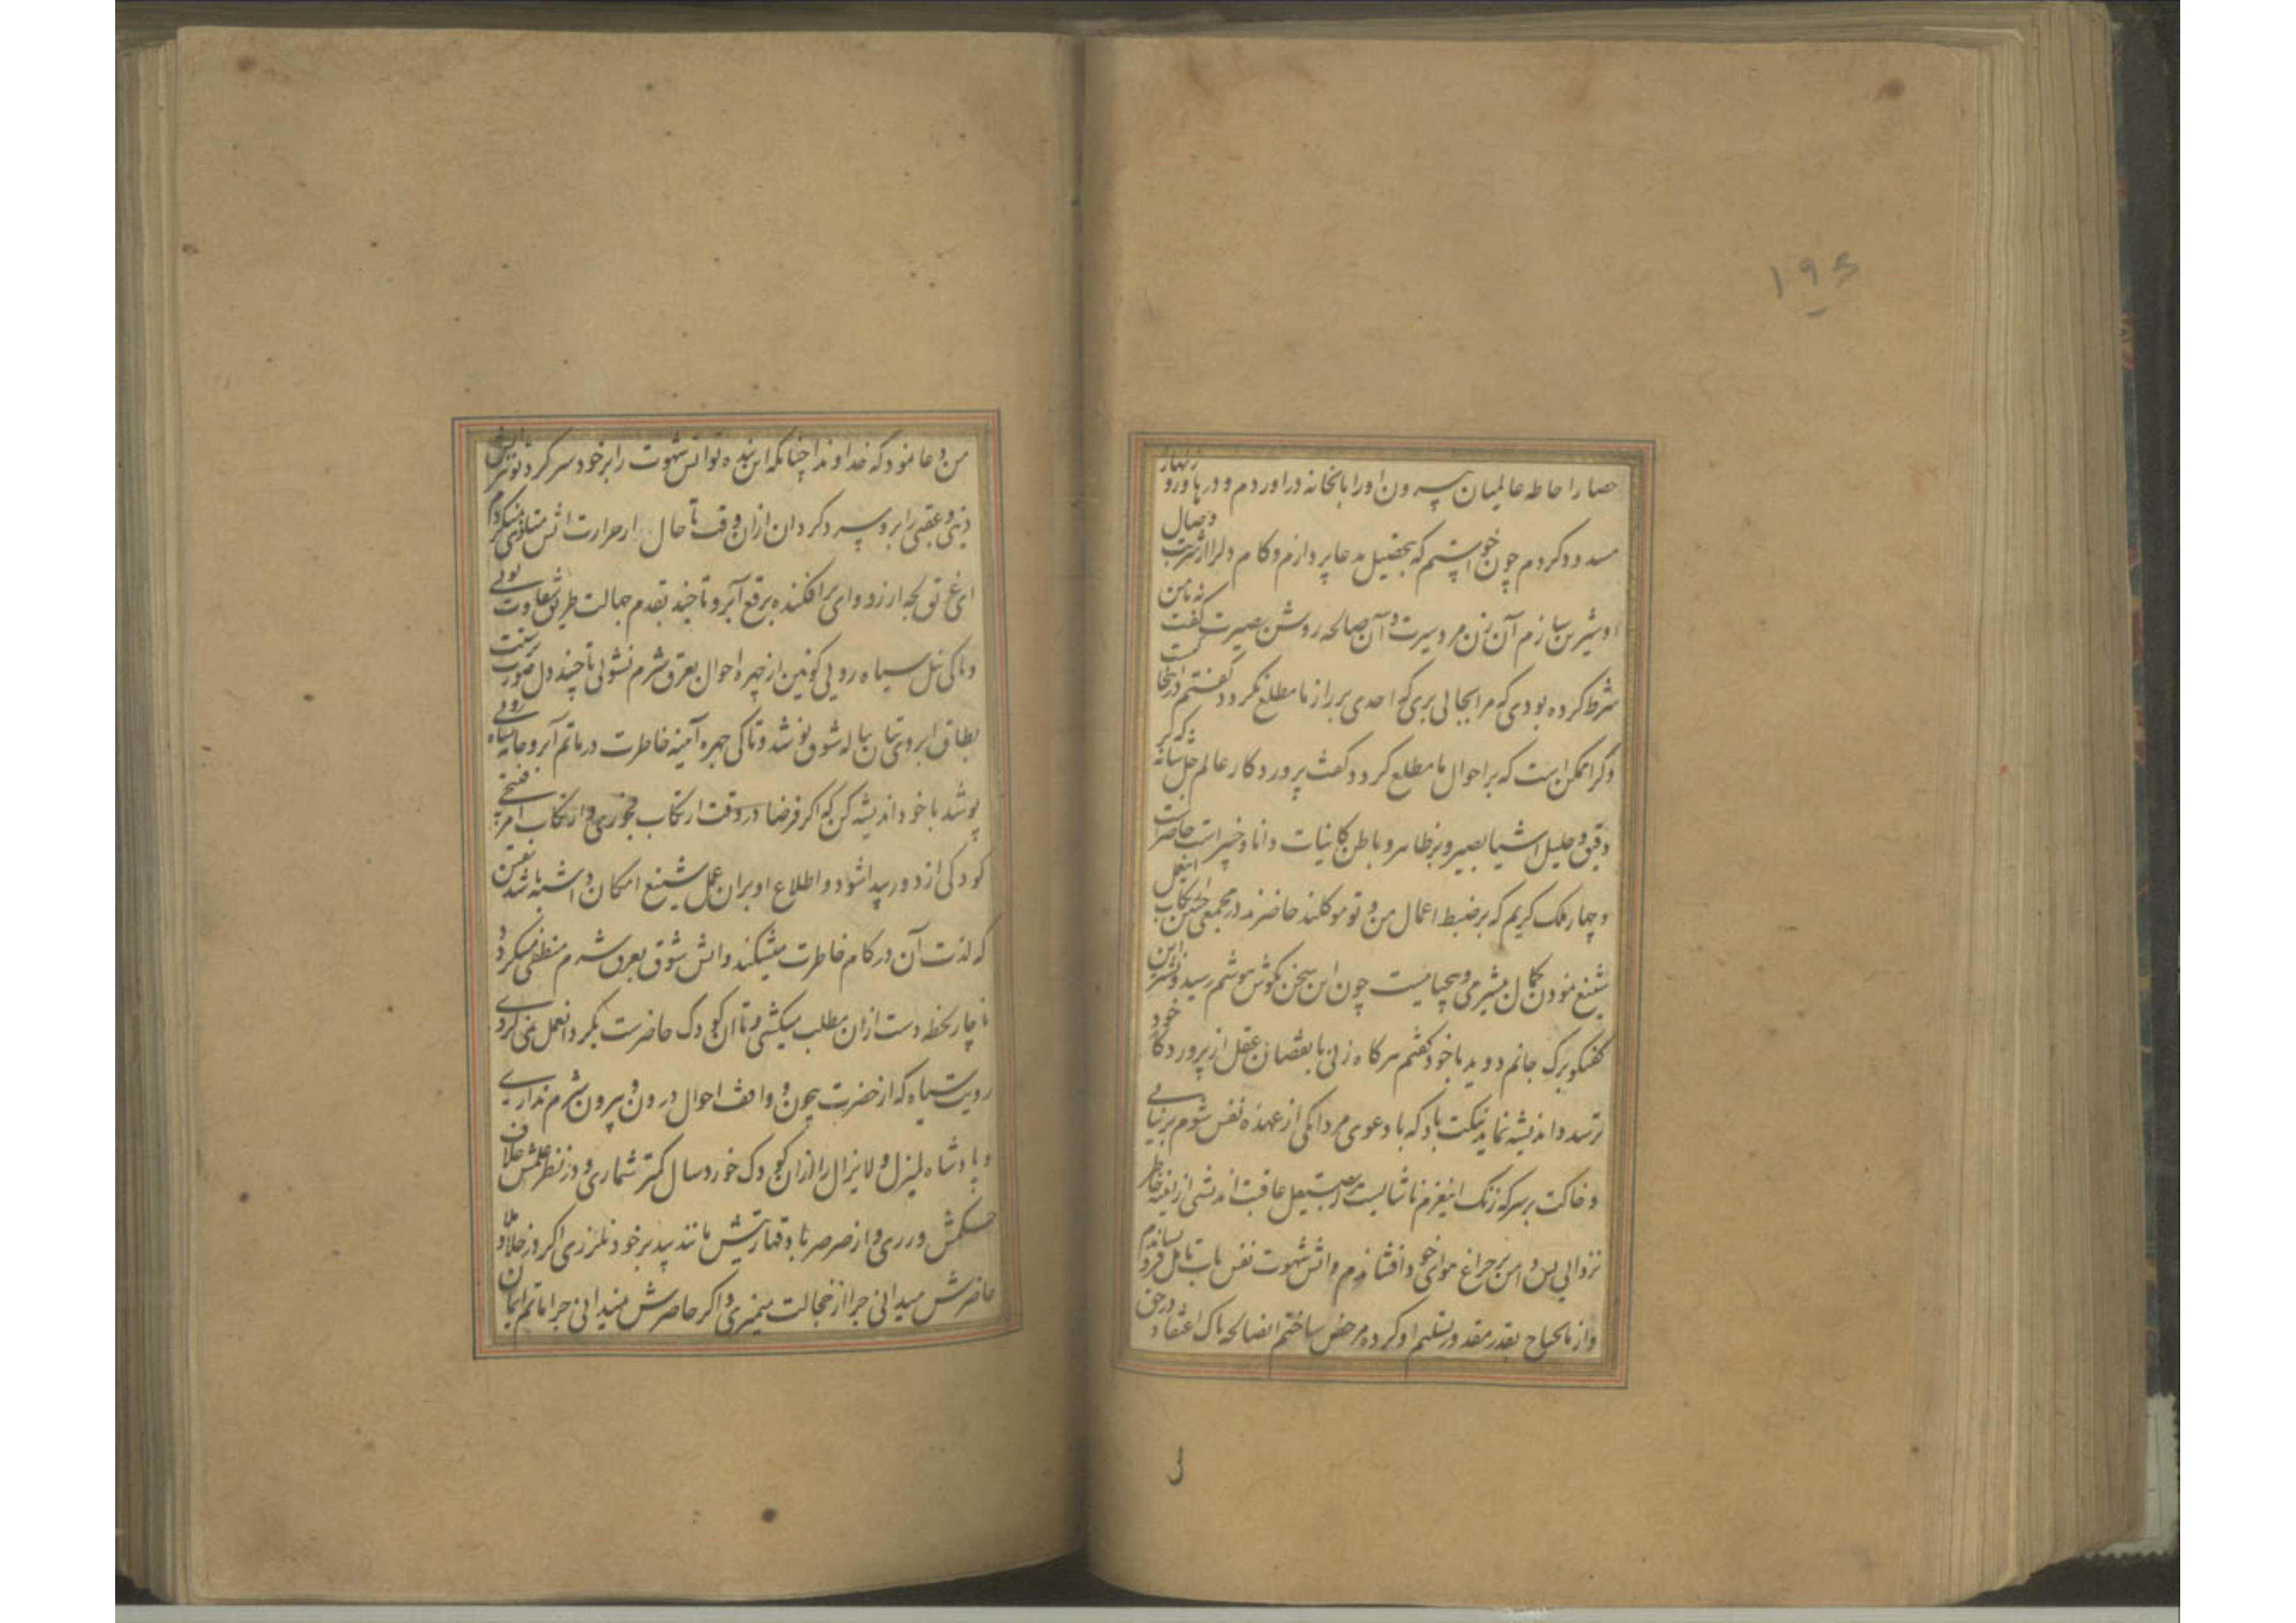 ۱۹۶
حصار احاطه عالمیان بیرون او را بانخانه دراوردم و درها و رو
مسدود کردم چون خواستم که بتحصیل مدعا پردازم و کام دل را از شربت وصال
او شیرین سازم آن زن مرد سیرت و آن صالحه روشن بصیرت گفت نه با من
شرط کرده بودی که مرا بجائی بری که احدی بر راز ما مطلع نکردد کفتم در اینجا
دکر امکن است که بر احوال ما مطلع کردد کفت پروردکار عالم جل شانه که بر
دقیق و جلیل اشیا بصیر و بر ظاهر و باطن کاینات دانا و خبیر است حاضر است
و چهار ملک کریم که بر ضبط اعمال من و تو موکلند حاضرند در مجمعی چنین ارتکاب اینعمل
شنیع نمودن کمال بیشرمی و بیحیاییست چون این سخن بکوش هوشم رسید و نشتر این
کفتکو برک جانم دوید با خود کفتم هرکاه زنی با نقصان عقل از پروردکار خود
ترسد و اندیشه نماید نیکت باد که با دعوی مردانکی از عهده نفس شوم بر نیایی
و خاکت بر سر که زنک اینعزم ناشایست را بصیقل عاقبت اندیشی از آینه خاطر
نزدایی پس دامن بر چراغ هوای خود افشاندم و اتش شهوت نفس باب تامل فرو نشاندم
و از مایحتاج بقدر مقدور تسلیم او کرده مرخص ساختم انصالحه پاک اعتقاد در حق
من دعا نمود که خداوندا چنانکه این بنده تو اتش شهوت را بر خود سرد کرد تو نیز اتش
دنیی و عقبی را برو سرد کردان ازان وقت تا حال از حرارت اتش متاذی نمیکردم
ای غرق لجه ارزو و ای برافکنده برقع آبرو تا چند بقدم جهالت طریق شقاوت پویی
و تا کی نیل سیاه رویی کونین از چهره احوال بعرق شرم نشوئی تا چند دل صورت پرستت
بطاق ابروی بتان پیاله شوق نوشد و تا کی چهره آمینه خاطرت در ماتم آبرو جامه سیاه رویی
پوشد با خود اندیشه کن که اکر فرضا در وقت ارتکاب فجوری و ارتکاب امر قبیحی
کودکی از دور پیدا شود و اطلاع او بران عمل شنیع امکان داشته باشد یقین
که لذت آن در کام خاطرت میشکند و اتش شوق بعرق شرم منطفی میکردد
ناچار لحظه دست ازان مطلب میکشی و تا ان کودک حاضرست بکرد انعمل نمی کردی
رویت سیاه که از حضرت بیچون و واقف احوال درون و بیرون شرم نداری
و پادشاه لم یزل و لا یزال را ازان کودک خوردسال کمتر شماری و در نظر علمش خلاف
حکمش ورزی و از صرصر باد قهاریتش مانند بید بر خود نلرزی اکر در خلا و ملا
حاضرش میدانی چرا از خجالت نمیمیری و اکر حاضرش نمیدانی چرا ماتم ایمان